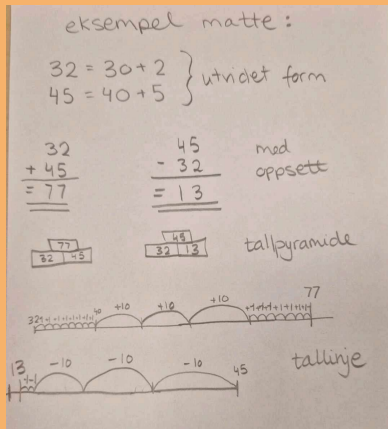 eksempel matte:
32 = 30 + 2
45 = 40 + 5
} utvidet form
32
+ 45
= 77
45
- 32
= 13
med
oppsett
77
32 45
45
32 13
tallpyramide
32 +1+1+1+1+1+1+1+1 40 +10 +10 +10 +1+1+1+1+1+1+1 77
13 -1-1 -10 -10 -10 45
tallinje